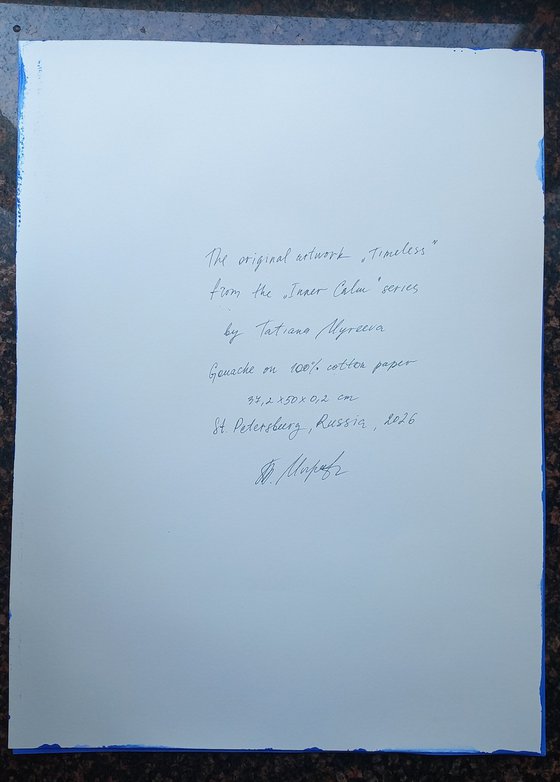 The original artwork „Timeless"
from the „Inner Calm" series
by Tatiana Myreeva
Gouache on 100% cotton paper
37,2 x 50 x 0,2 cm
St. Petersburg, Russia, 2026